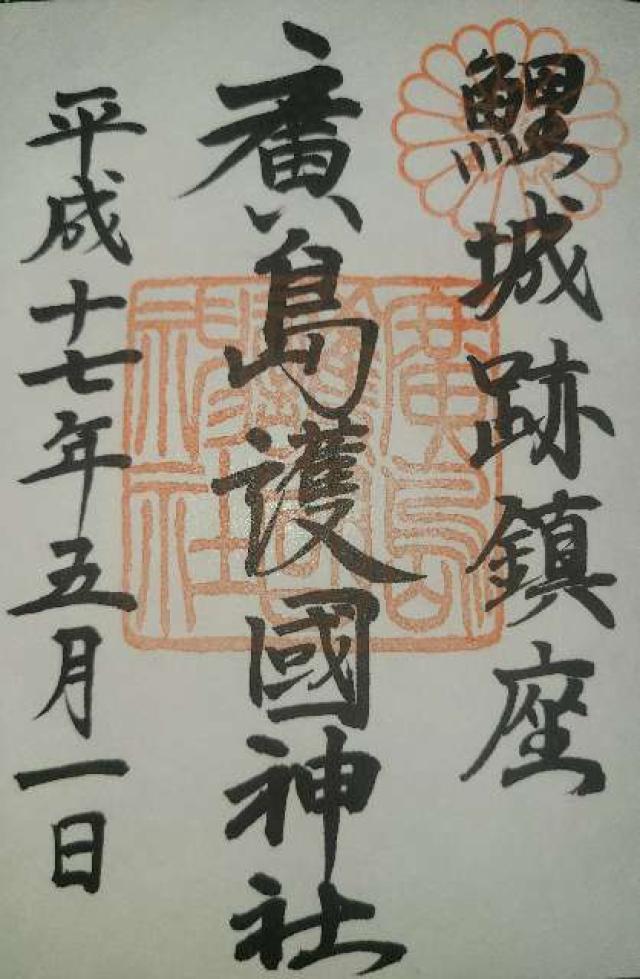 鯉城跡鎮座
廣島護國神社
平成十七年五月一日
廣島護國神社